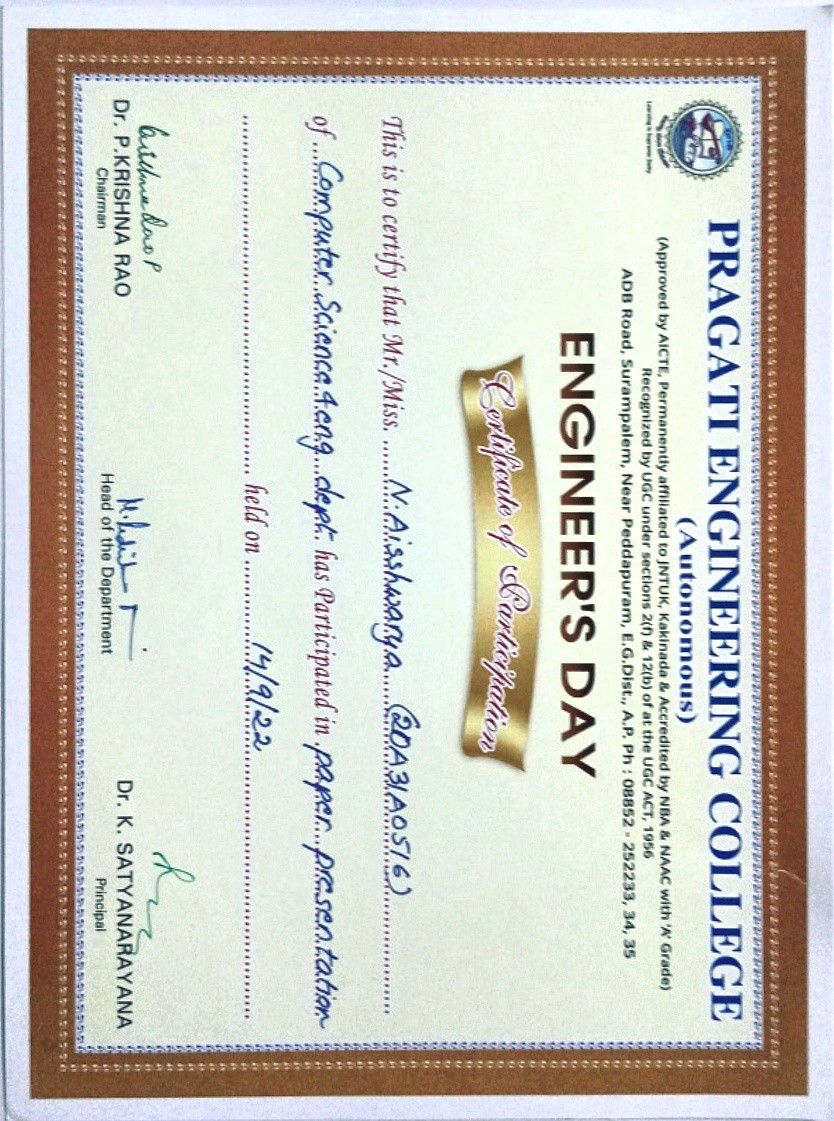 PRAGATI ENGINEERING COLLEGE
(Autonomous)
(Approved by AICTE, Permanently affiliated to JNTUK, Kakinada & Accredited by NBA & NAAC with 'A' Grade)
Recognized by UGC under sections 2(f) & 12(b) of at the UGC ACT, 1956
ADB Road, Surampalem, Near Peddapuram, E.G.Dist., A.P. Ph : 08852 - 252233, 34, 35
Learning is Supreme Deity
ENGINEER'S DAY
Certificate of Participation
This is to certify that Mr./Miss. N. Aisshwarya (20A31A0516)
of Computer Science & eng dept. has Participated in paper presentation
held on 14/9/22
Krishna Rao P
Dr. P.KRISHNA RAO
Chairman
Head of the Department
Dr. K. SATYANARAYANA
Principal